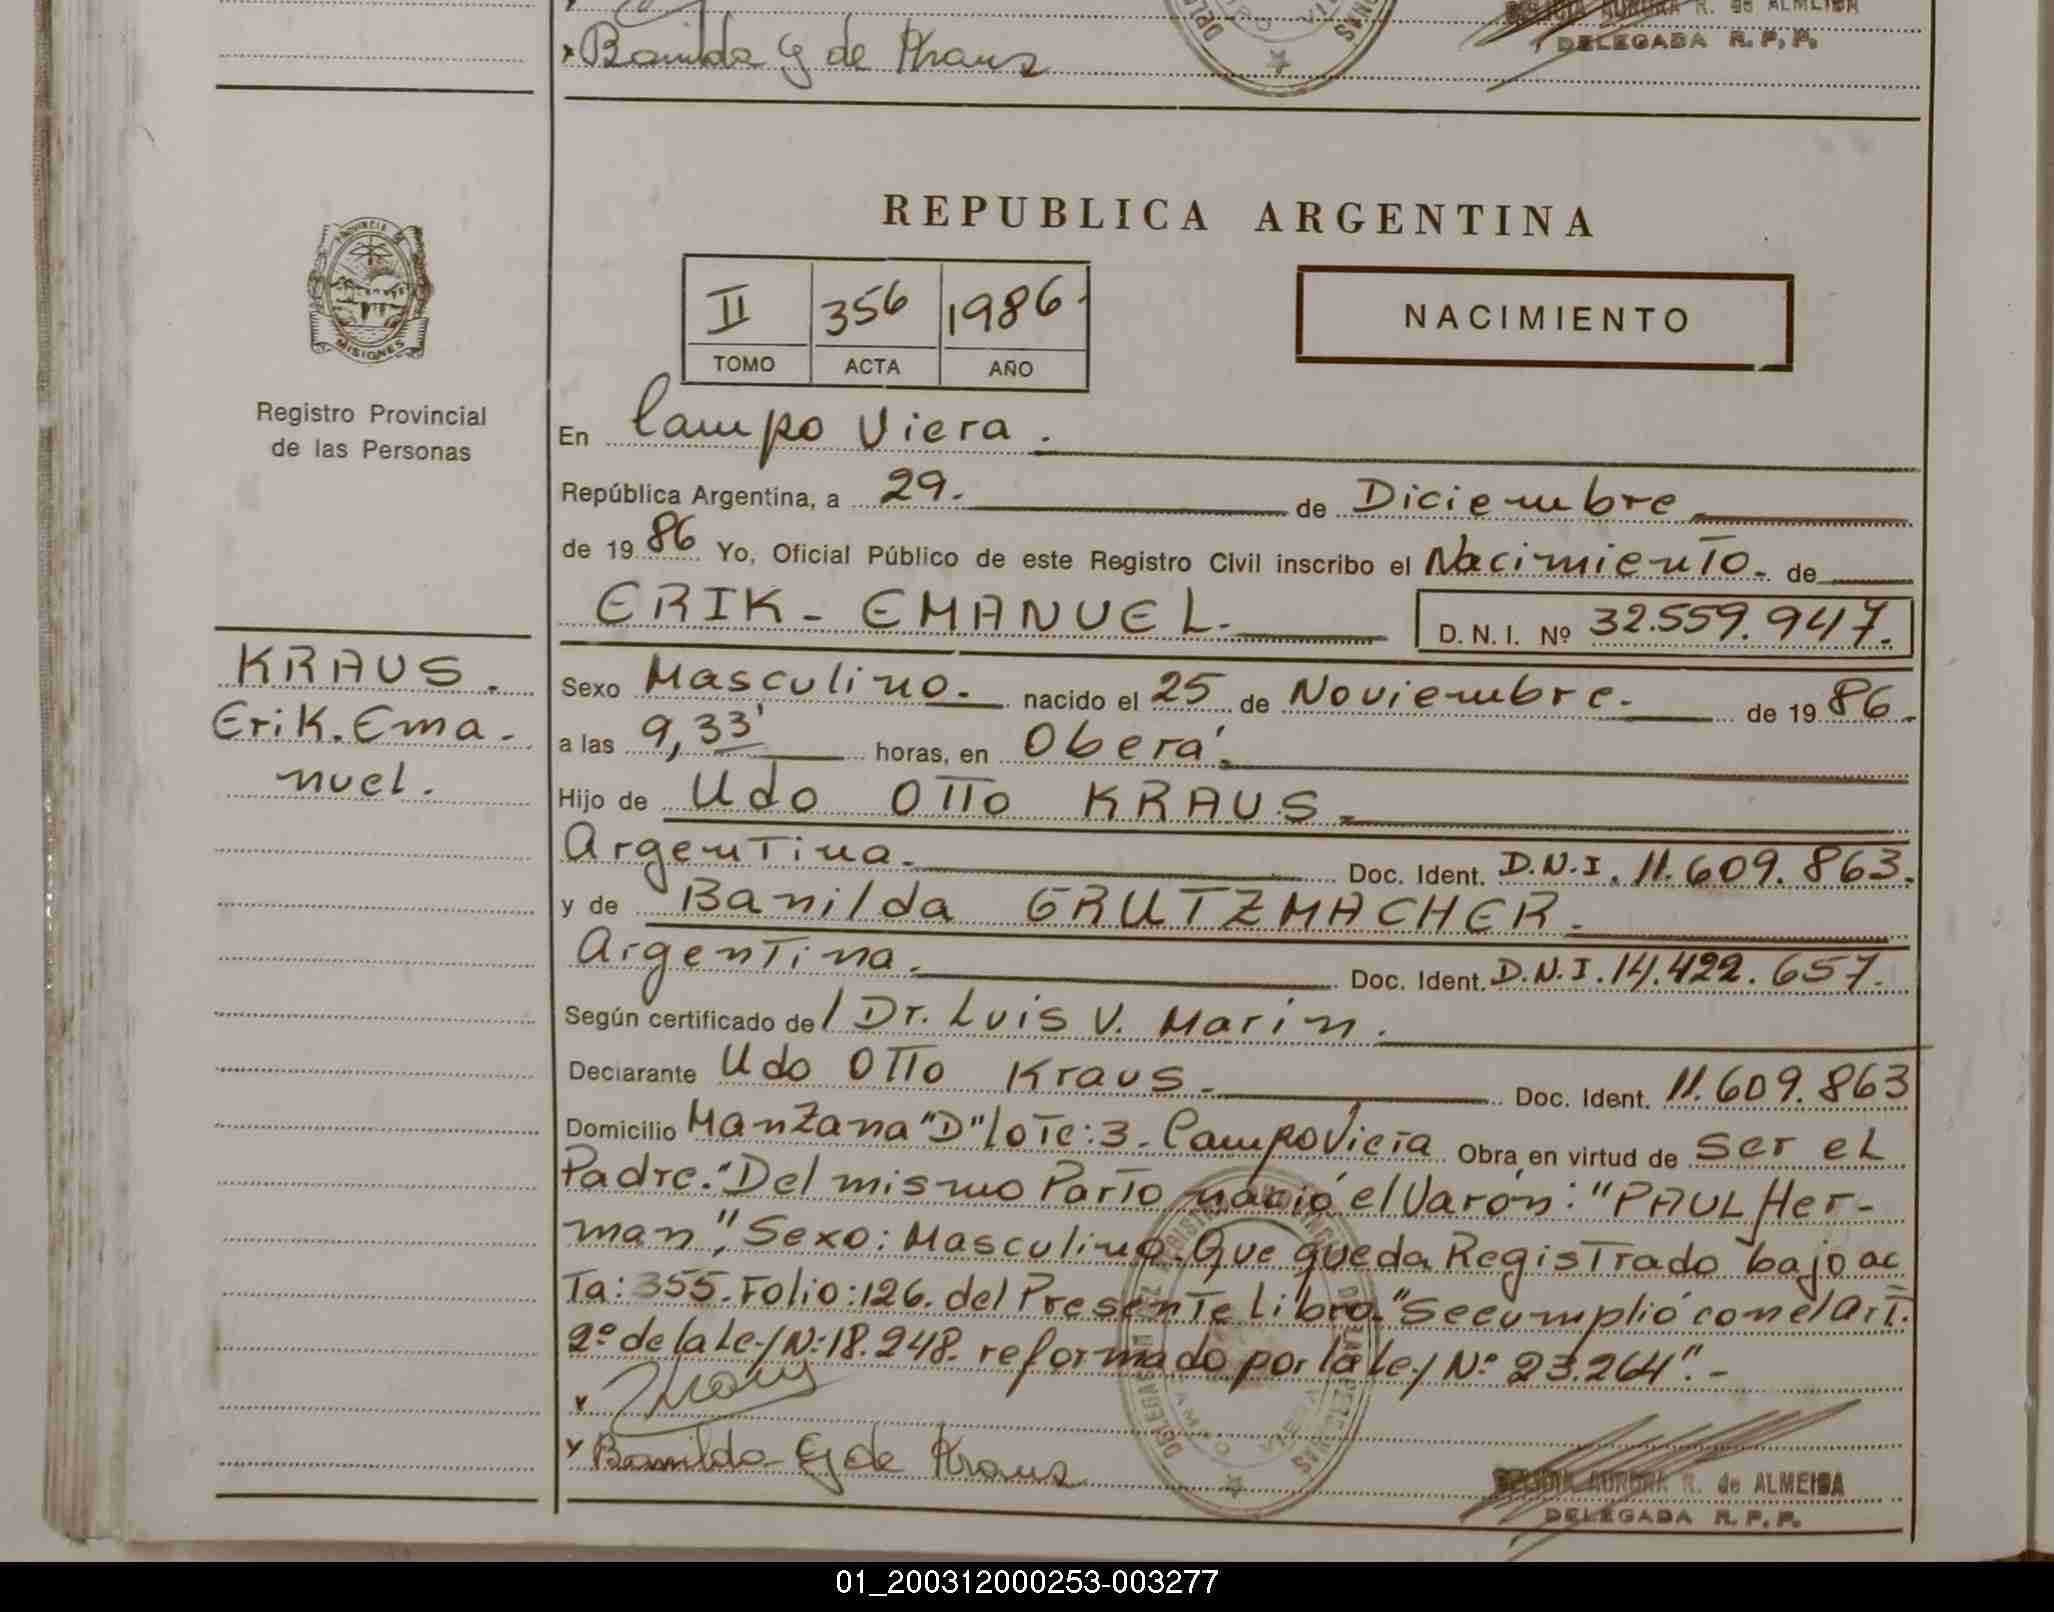 Banilda G de Kraus
R. de ALMEIDA
DELEGADA R. P. P.
REPUBLICA ARGENTINA
II 356 1986
TOMO ACTA AÑO
NACIMIENTO
PROVINCIA DE
MISIONES
Registro Provincial
de las Personas
KRAUS.
Erik. Ema-
nuel.
En Campo Viera.
República Argentina, a 29. de Diciembre
de 1986 Yo, Oficial Público de este Registro Civil inscribo el Nacimiento. de
ERIK - EMANUEL. D. N. I. Nº 32.559.947.
Sexo Masculino. nacido el 25 de Noviembre. de 1986.
a las 9,33' horas, en Oberá.
Hijo de Udo OTTO KRAUS.
Argentina. Doc. Ident. D.N.I. 11.609.863.
y de Banilda GRUTZMACHER.
Argentina. Doc. Ident. D.N.I. 14.422.657.
Según certificado de / Dr. Luis V. Marin.
Declarante Udo OTTO Kraus. Doc. Ident. 11.609.863
Domicilio Manzana "D" lote: 3. Campo Viera Obra en virtud de ser el
Padre. "Del mismo Parto nació el Varón: "PAUL Her-
man", Sexo: Masculino. Que queda Registrado bajo ac
Ta: 355. Folio: 126. del Presente Libro." Se cumplió con el Art.
2º de la Ley N: 18.248. reformado por la Ley Nº 23.264". -
Banilda G de Kraus
AURORA R. de ALMEIDA
DELEGADA R. P. P.
01_200312000253-003277